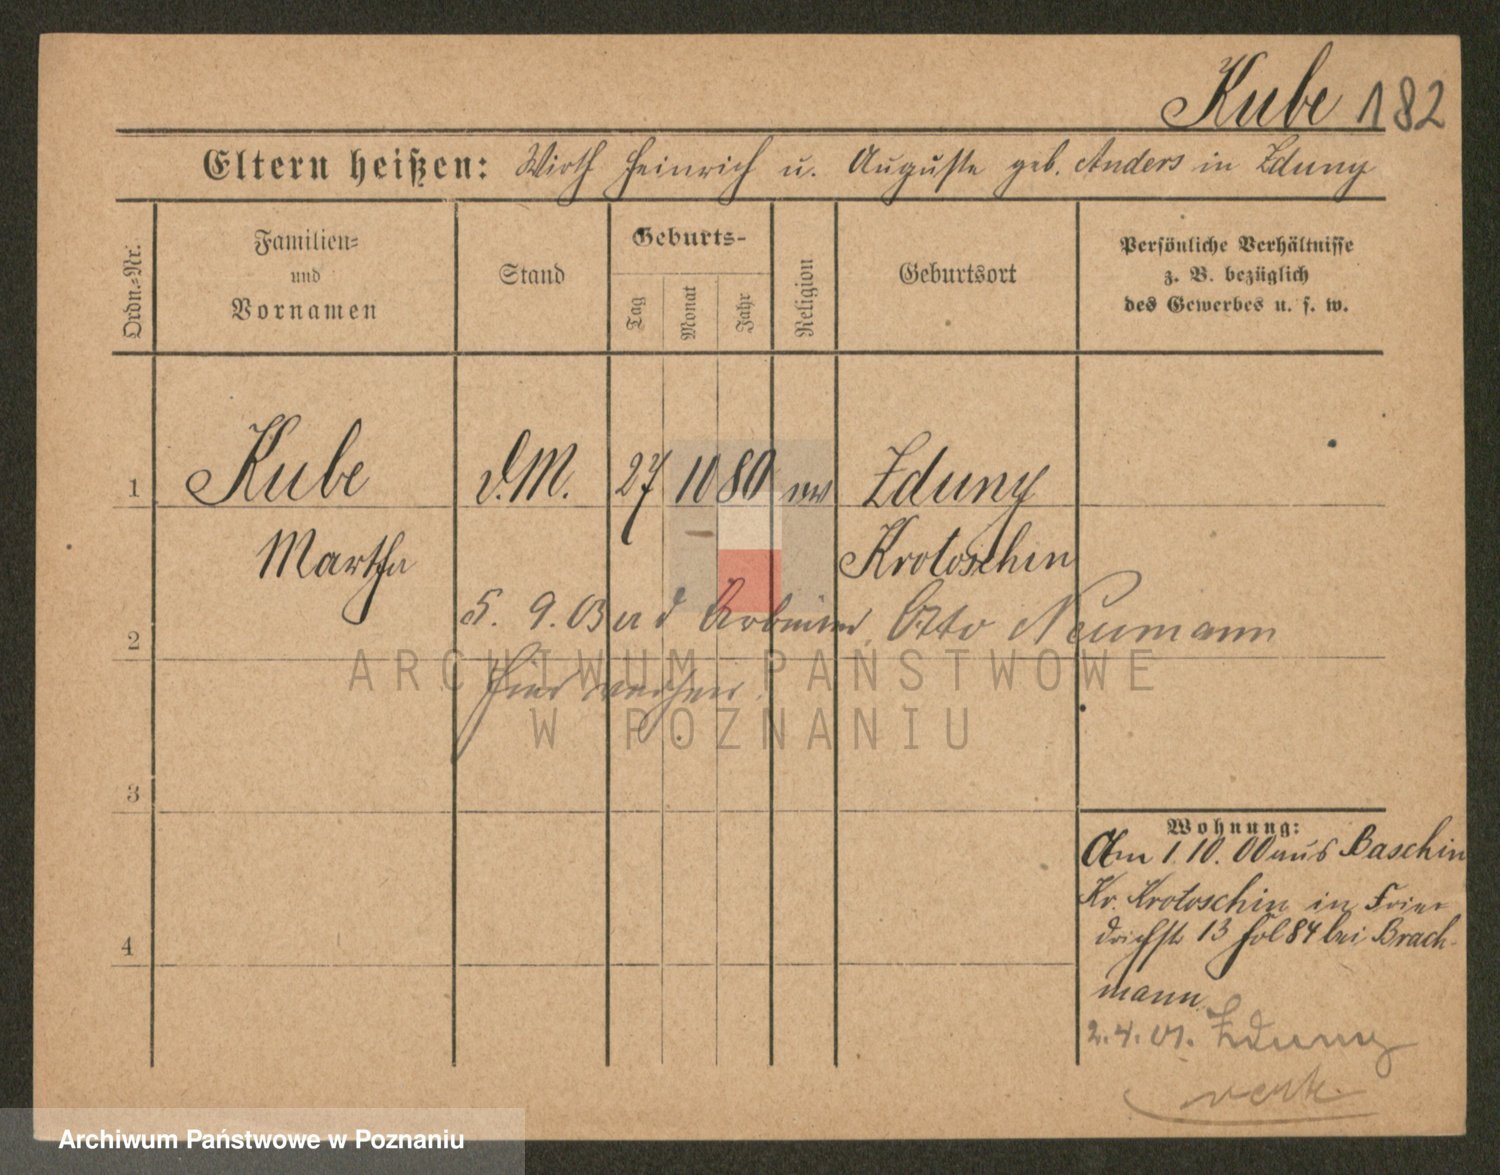 Kube 182
Eltern heißen: Wirth Heinrich u. Auguste geb. Anders in Zduny
Ordn.-Nr.
Familien-
und
Vornamen
Stand
Geburts-
Tag
Monat
Jahr
Religion
Geburtsort
Persönliche Verhältnisse
z. B. bezüglich
des Gewerbes u. s. w.
1 Kube d.M. 27 10 80 ev Zduny
Martha Krotoschin
2 5. 9. 03 Arbeiter Otto Neumann
hier
ARCHIWUM PAŃSTWOWE
W POZNANIU
3
Wohnung:
Am 1. 10. 00 aus Baschin
Kr. Krotoschin in Frie
drichstr 13 fol 84 bei Brach-
mann
4
2. 4. 01. Zduny
Archiwum Państwowe w Poznaniu